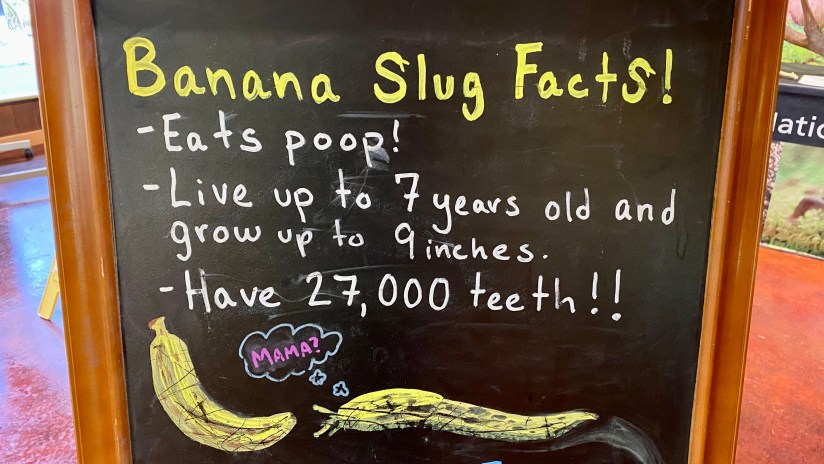 Banana Slug Facts!
- Eats poop!
- Live up to 7 years old and
grow up to 9 inches.
- Have 27,000 teeth!!
MAMA?